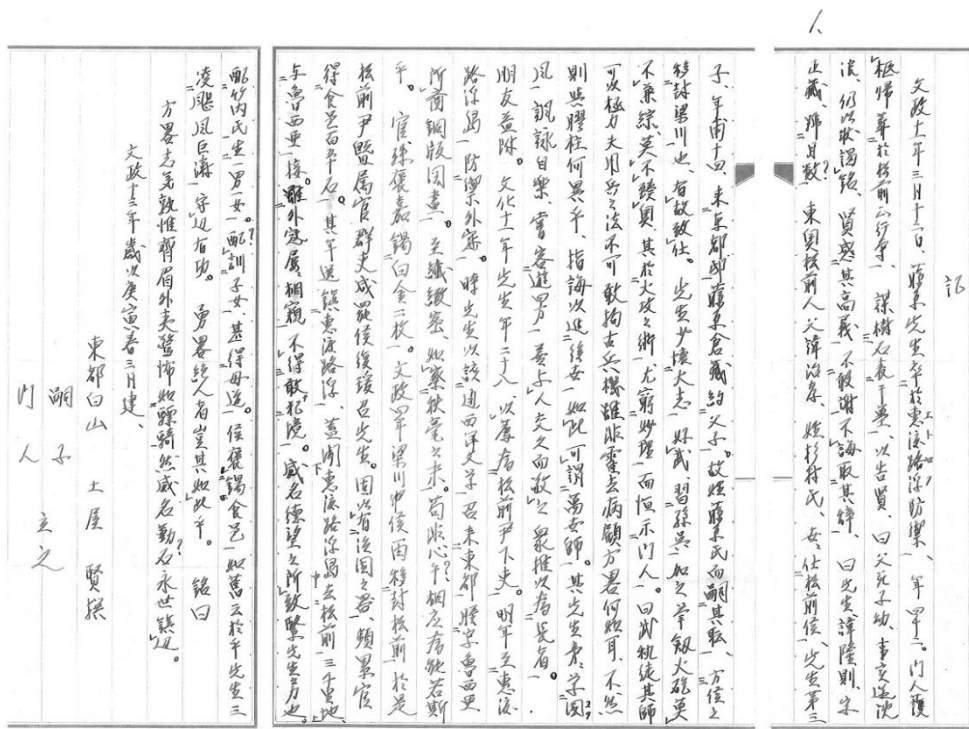 記
文政十一年三月十六日、藤原先生卒於恵渡路浮防禦、年四十二。門人護
柩帰葬於松前山行亭、謀樹石表于墓、以告賢、曰父死子幼、事交遂沈
滅、仍以状謁銘、賢感其高義、不敢謝、不誨取其辞、曰先生諱隆則、字
正蔵、姉月敬、東奥松前人、父諱治孝、姓杉村氏、世々仕松前侯、先生第三
子、年甫十四、来東都邸、藤原倉蔵約父子、故姓藤原氏而嗣其転、方侯之
移封梁川也、有故致仕。先生少壊大志、好武、習孫呉、加之弓剣火砲莫
不兼綜、莫不蹟奥、其於火攻之術、尤窮妙理、而恒示門人、曰武執徒其師
可以極力大用兵之法不可敢拘古兵機雖非霍去病顧方略何如耳、不然
則與膠柱何異乎、指誨以進後生、如此可謂万世師、其先生弟、学国
風、諷詠自楽、嘗客遊四方、善与人交久而敬之、衆推以為長者、
朋友益深。文化十一年先生年二十八、以薦為松前尹下吏、明年至恵渡
路浮島、防禦外寇、時先生以該通西洋文学、召来東都、謄字魯西亜
所商銅版図書、至繊緻密、如察秋毫之末、苟非心午相応為能若斯
乎。官殊褒嘉錫白金二枚、文政四年梁川侯再移封松前、於是
松前尹曁属官群吏咸罷侯復援召先生。因以有後国之器、頻累官
得食邑百五十石、其年遂鎮恵渡路浮、蓋聞恵渡路浮島去松前、三千里地
与魯西亜接、雖外寇屢相窺、不得敢犯境、威名徳望之所致繋先生力也。
配竹内氏生一男一女、配訓子女、甚得母道。侯褒錫食邑、如旧云於乎先生三
凌颶風巨濤、守辺有功。勇略絶人者豈其如此乎。銘曰
方略志気孰惟斉眉外夷驚怖如驃騎然威名勒石永世鎮辺。
文政十三年歳次庚寅春三月建、
東都白山 土屋賢撰
嗣子
門人 立之